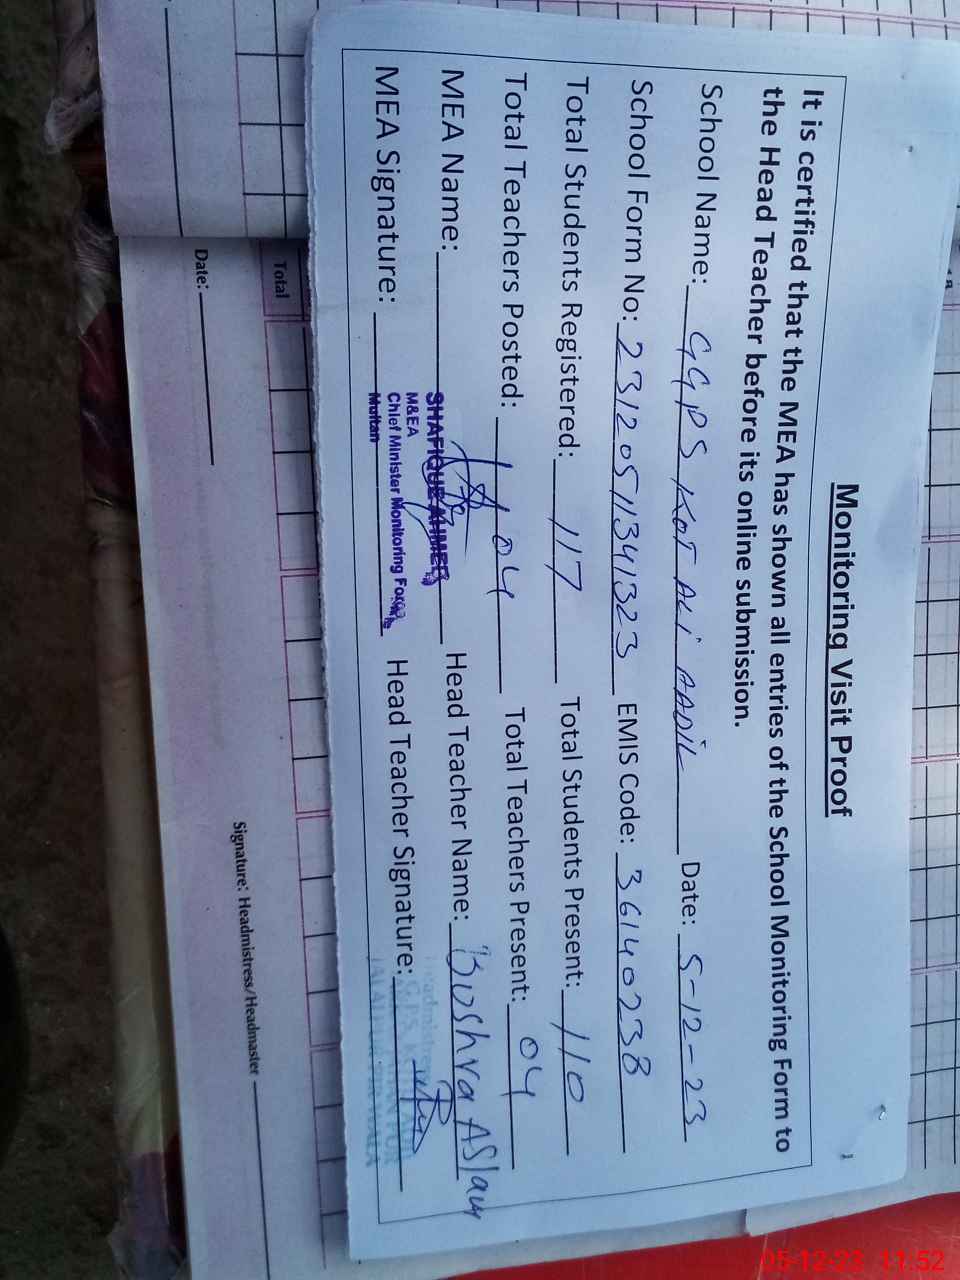 Monitoring Visit Proof
It is certified that the MEA has shown all entries of the School Monitoring Form to
the Head Teacher before its online submission.
School Name: GGPS KOT ALi AADiL Date: 5-12-23
School Form No: 231205113413​23 EMIS Code: 36140238
Total Students Registered: 117 Total Students Present: 110
Total Teachers Posted: 04 Total Teachers Present: 04
MEA Name: SHAFIQUE AHMED Head Teacher Name: Bushra Aslam
M&EA
MEA Signature: Chief Minister Monitoring Force Head Teacher Signature:
Multan
Headmistress
JALALPUR PIRWALA
Total
Date:
Signature: Headmistress/Headmaster
05-12-23 11:52